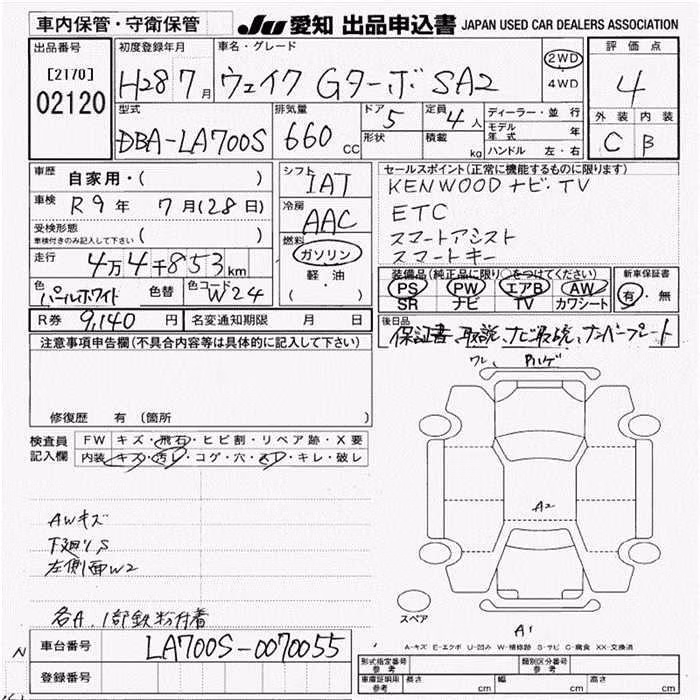 車内保管・守衛保管
JU 愛知 出品申込書 JAPAN USED CAR DEALERS ASSOCIATION
出品番号
[2170]
02120
初度登録年月
H28 7月
車名・グレード
ウェイク Gターボ SA2
2WD
4WD
評価点
4
外装 内装
C B
型式
DBA-LA700S
排気量
660 CC
ドア 5
形状
定員 4人
積載 kg
ディーラー・並行
モデル年式 年
ハンドル 左・右
車歴 自家用・( )
車検 R9年 7月(28日)
受検形態
車検付きのみ記入して下さい ( )
走行 4万4千853km
色 パールホワイト 色替
色コード W24
シフト IAT
冷房 AAC
燃料 ガソリン
軽・油
( )
R券 9,140円 名変通知期限 月 日
セールスポイント(正常に機能するものに限ります)
KENWOOD ナビ・TV
ETC
スマートアシスト
スマートキー
装備品(純正品に限り○をつけてください)
PS PW エアB AW
SR ナビ TV カワシート
新車保証書
有・無
後日品
保証書、取説、ナビ取説、ナンバープレート
注意事項申告欄(不具合内容等は具体的に記入して下さい)
修復歴 有 (箇所
検査員記入欄
FW キズ・飛石・ヒビ割・リペア跡・X要
内装 キズ・汚レ・コゲ・穴・スレ・キレ・破レ
AWキズ
下廻りS
左側面W2
各A.1部鉄粉付着
ワレ
ハゲ
A2
A1
スペア
A-キズ E-エクボ U-凹み W-補修跡 S-サビ C-腐食 XX-交換済
N
車台番号 LA700S-0070055
登録番号
形式指定番号 参考
類別区分番号 参考
車庫証明用 参考 長さ cm 幅 cm 高さ cm